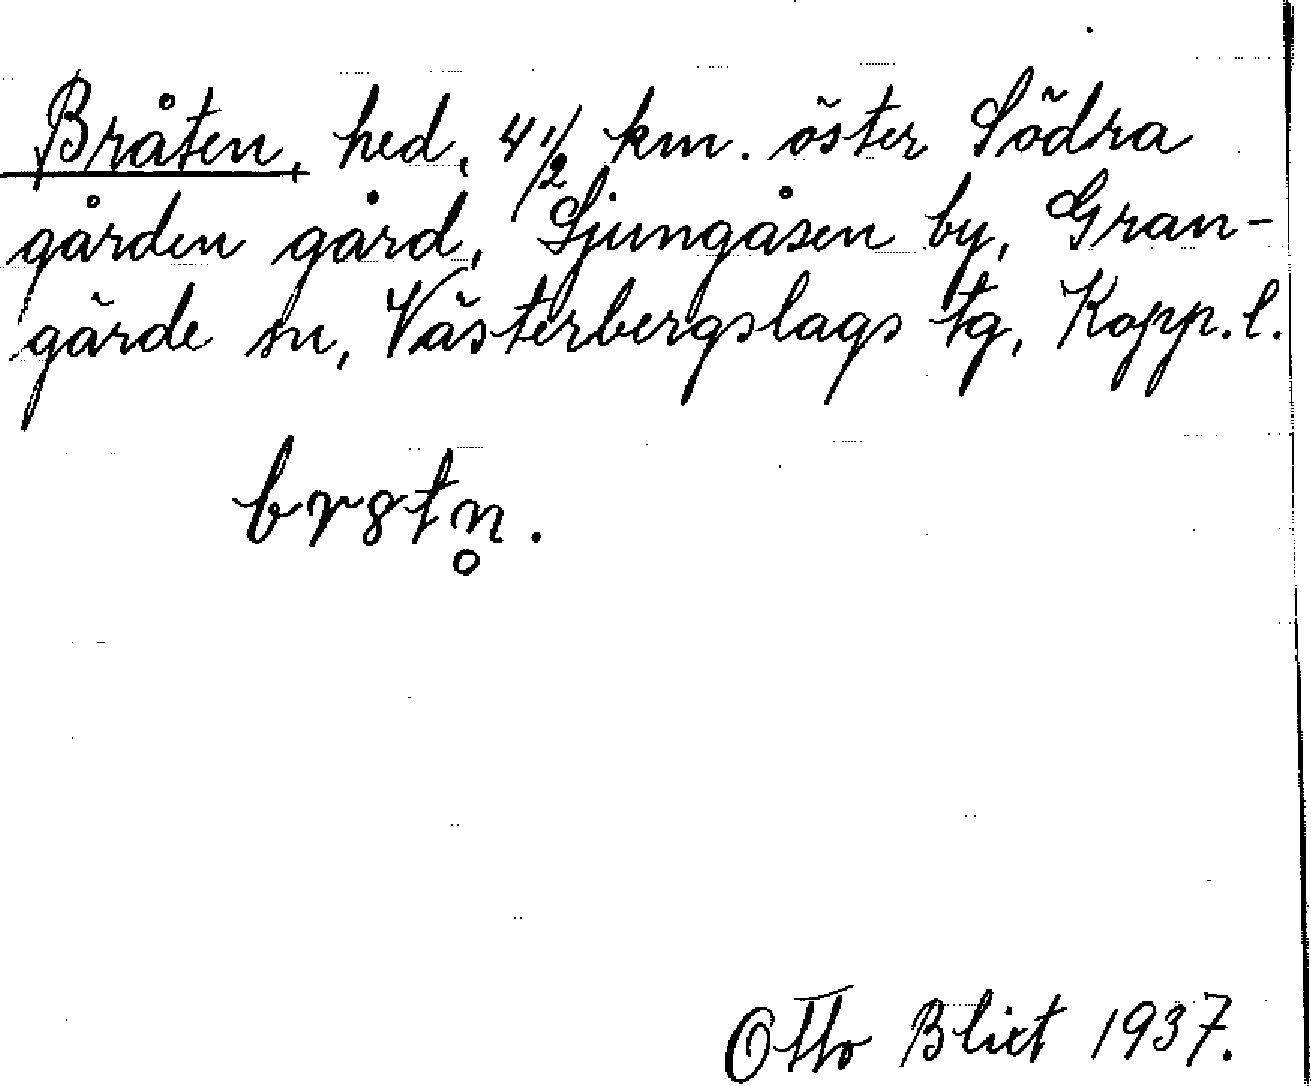 Bråten, hed, 4 1/2 km. öster Södra
gården gård, Ljungåsen by, Gran-
gärde sn, Västerbergslags tg, Kopp. l.
br8tn̥.
Otto Blixt 1937.